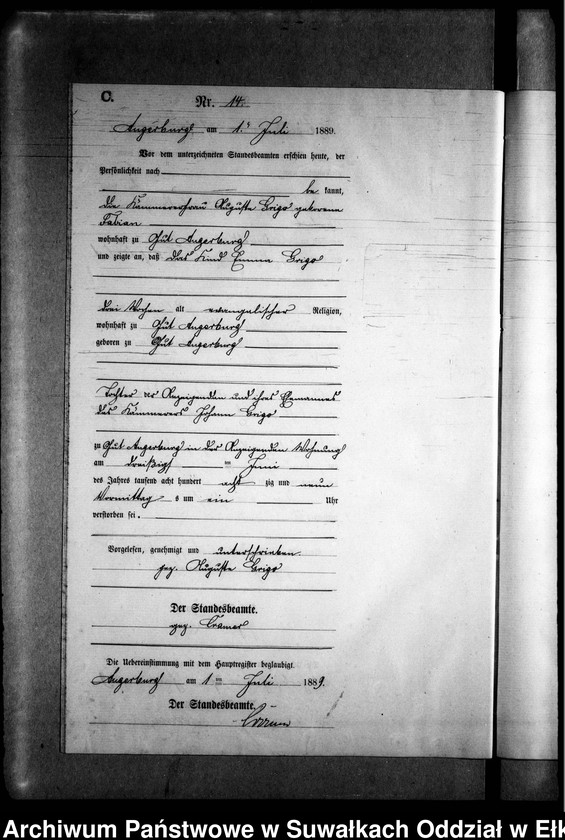 C.
Nr. 14.
Angerburg am 1.ᵗ Juli 1889.
Vor dem unterzeichneten Standesbeamten erschien heute, der
Persönlichkeit nach
be kannt,
die Kämmererfrau Auguste Grigo geborene
Fabian
wohnhaft zu Gut Angerburg
und zeigte an, daß das Kind Emma Grigo
drei Wochen alt evangelischer Religion,
wohnhaft zu Gut Angerburg
geboren zu Gut Angerburg
Tochter der Anzeigenden und ihres Ehemannes
des Kämmerers Johann Grigo
zu Gut Angerburg in der Anzeigenden Wohnung
am dreißigsten Juni
des Jahres tausend acht hundert acht zig und neun
Vormittag s um ein Uhr
verstorben sei.
Vorgelesen, genehmigt und unterschrieben.
gez. Auguste Grigo
Der Standesbeamte.
gez. Cramer
Die Uebereinstimmung mit dem Hauptregister beglaubigt.
Angerburg am 1ten Juli 1889.
Der Standesbeamte.
Archiwum Państwowe w Suwałkach Oddział w Ełk